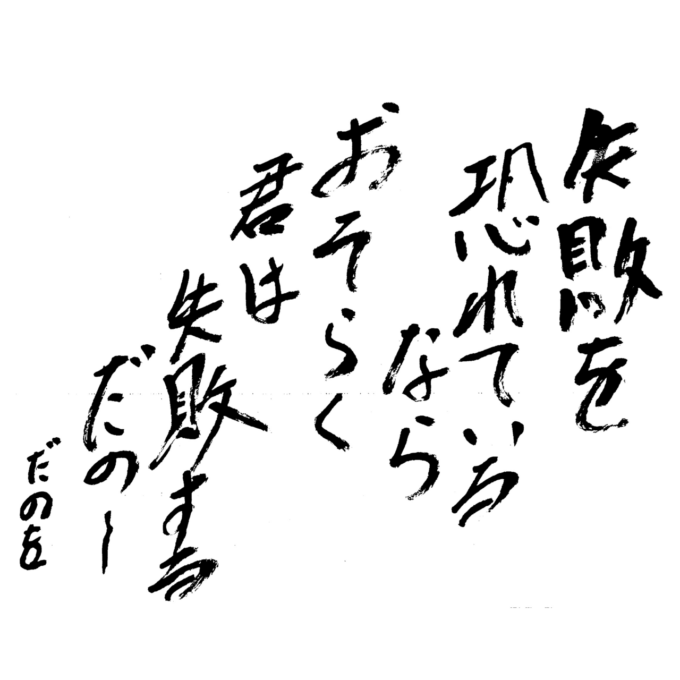 失敗を
恐れている
なら
おそらく
君は
失敗する
だのー
だの